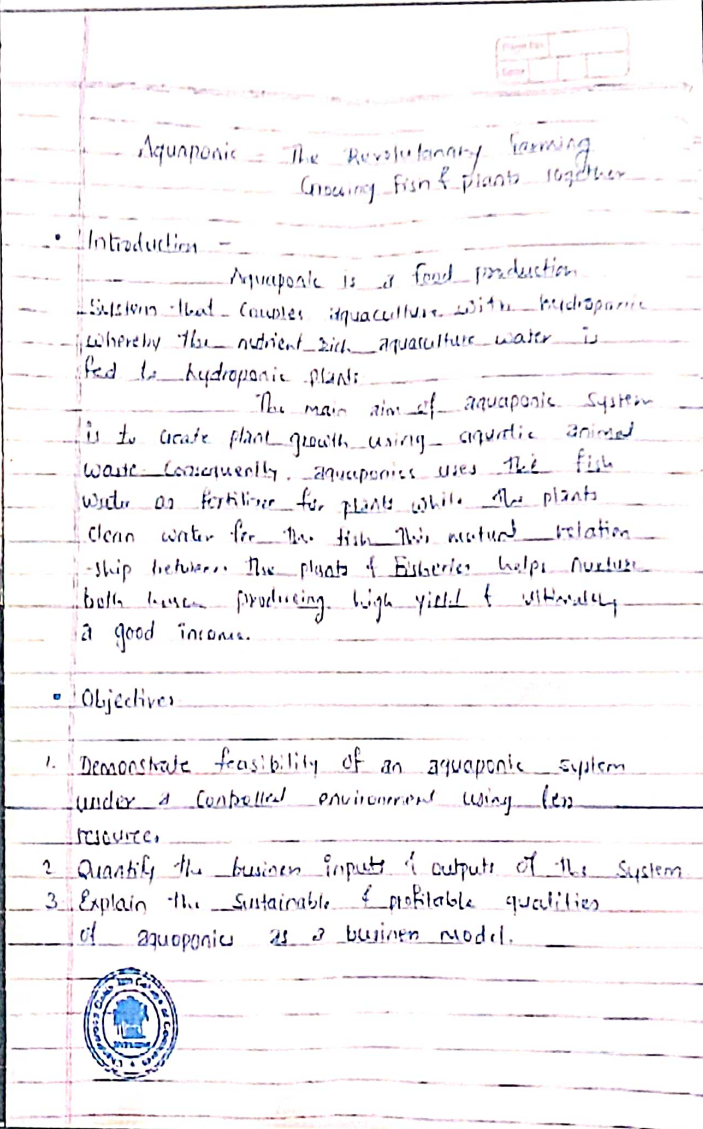 Page No.
Date
Aquaponic - The Revolutionary farming
Growing Fish & plants together
• Introduction -
Aquaponic is a food production
System that couples aquaculture with hydroponic
whereby the nutrient rich aquaculture water is
fed to hydroponic plants
The main aim of aquaponic system
is to create plant growth using aquatic animal
waste Consequently, aquaponics uses the fish
water as fertiliser for plants while the plants
clean water for the fish This mutual relation
-ship between the plants & Fisheries helps nurture
both hence producing high yield & ultimately
a good income.
• Objectives
1. Demonstrate feasibility of an aquaponic system
under a Controlled environment using less
resources
2 Quantify the business inputs & outputs of the System
3 Explain the Sustainable & profitable qualities
of aquaponics as a business model.